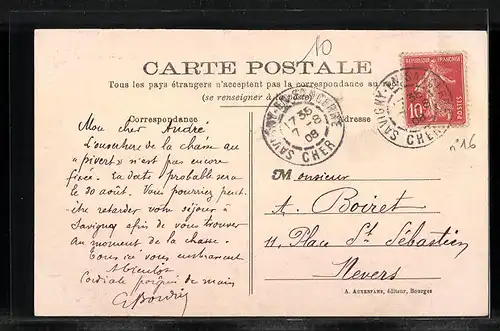 10
CARTE POSTALE
Tous les pays étrangers n'acceptent pas la correspondance au
(se renseigner à la poste)
Correspondance
Adresse
SAVIGNY-EN-SANCERRE
17 35
7 -8
08
CHER
REPUBLIQUE FRANÇAISE
10
POSTES
SAVIGNY-EN-SA
CHER
n°16
Mon cher André
L'ouverture de la chasse au
"pivert" n'est pas encore
fixée. La date probable sera
le 30 août. Vous pourriez peut-
être retarder votre séjour à
Savigny afin de vous trouver
au moment de la chasse.
Tous ici vous embrassent
A bientôt
Cordiale poignée de main
Monsieur
A. Boiret
11, Place St Sébastien
Nevers
A. AUXENFANS, éditeur, Bourges